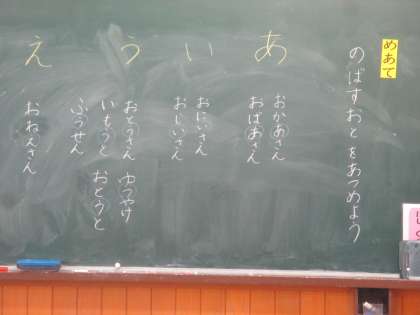 めあて
のばすおとをあつめよう
あ
おかあさん
おばあさん
い
おにいさん
おじいさん
う
おとうさん ゆうやけ
いもうと おとうと
ふうせん
え
おねえさん